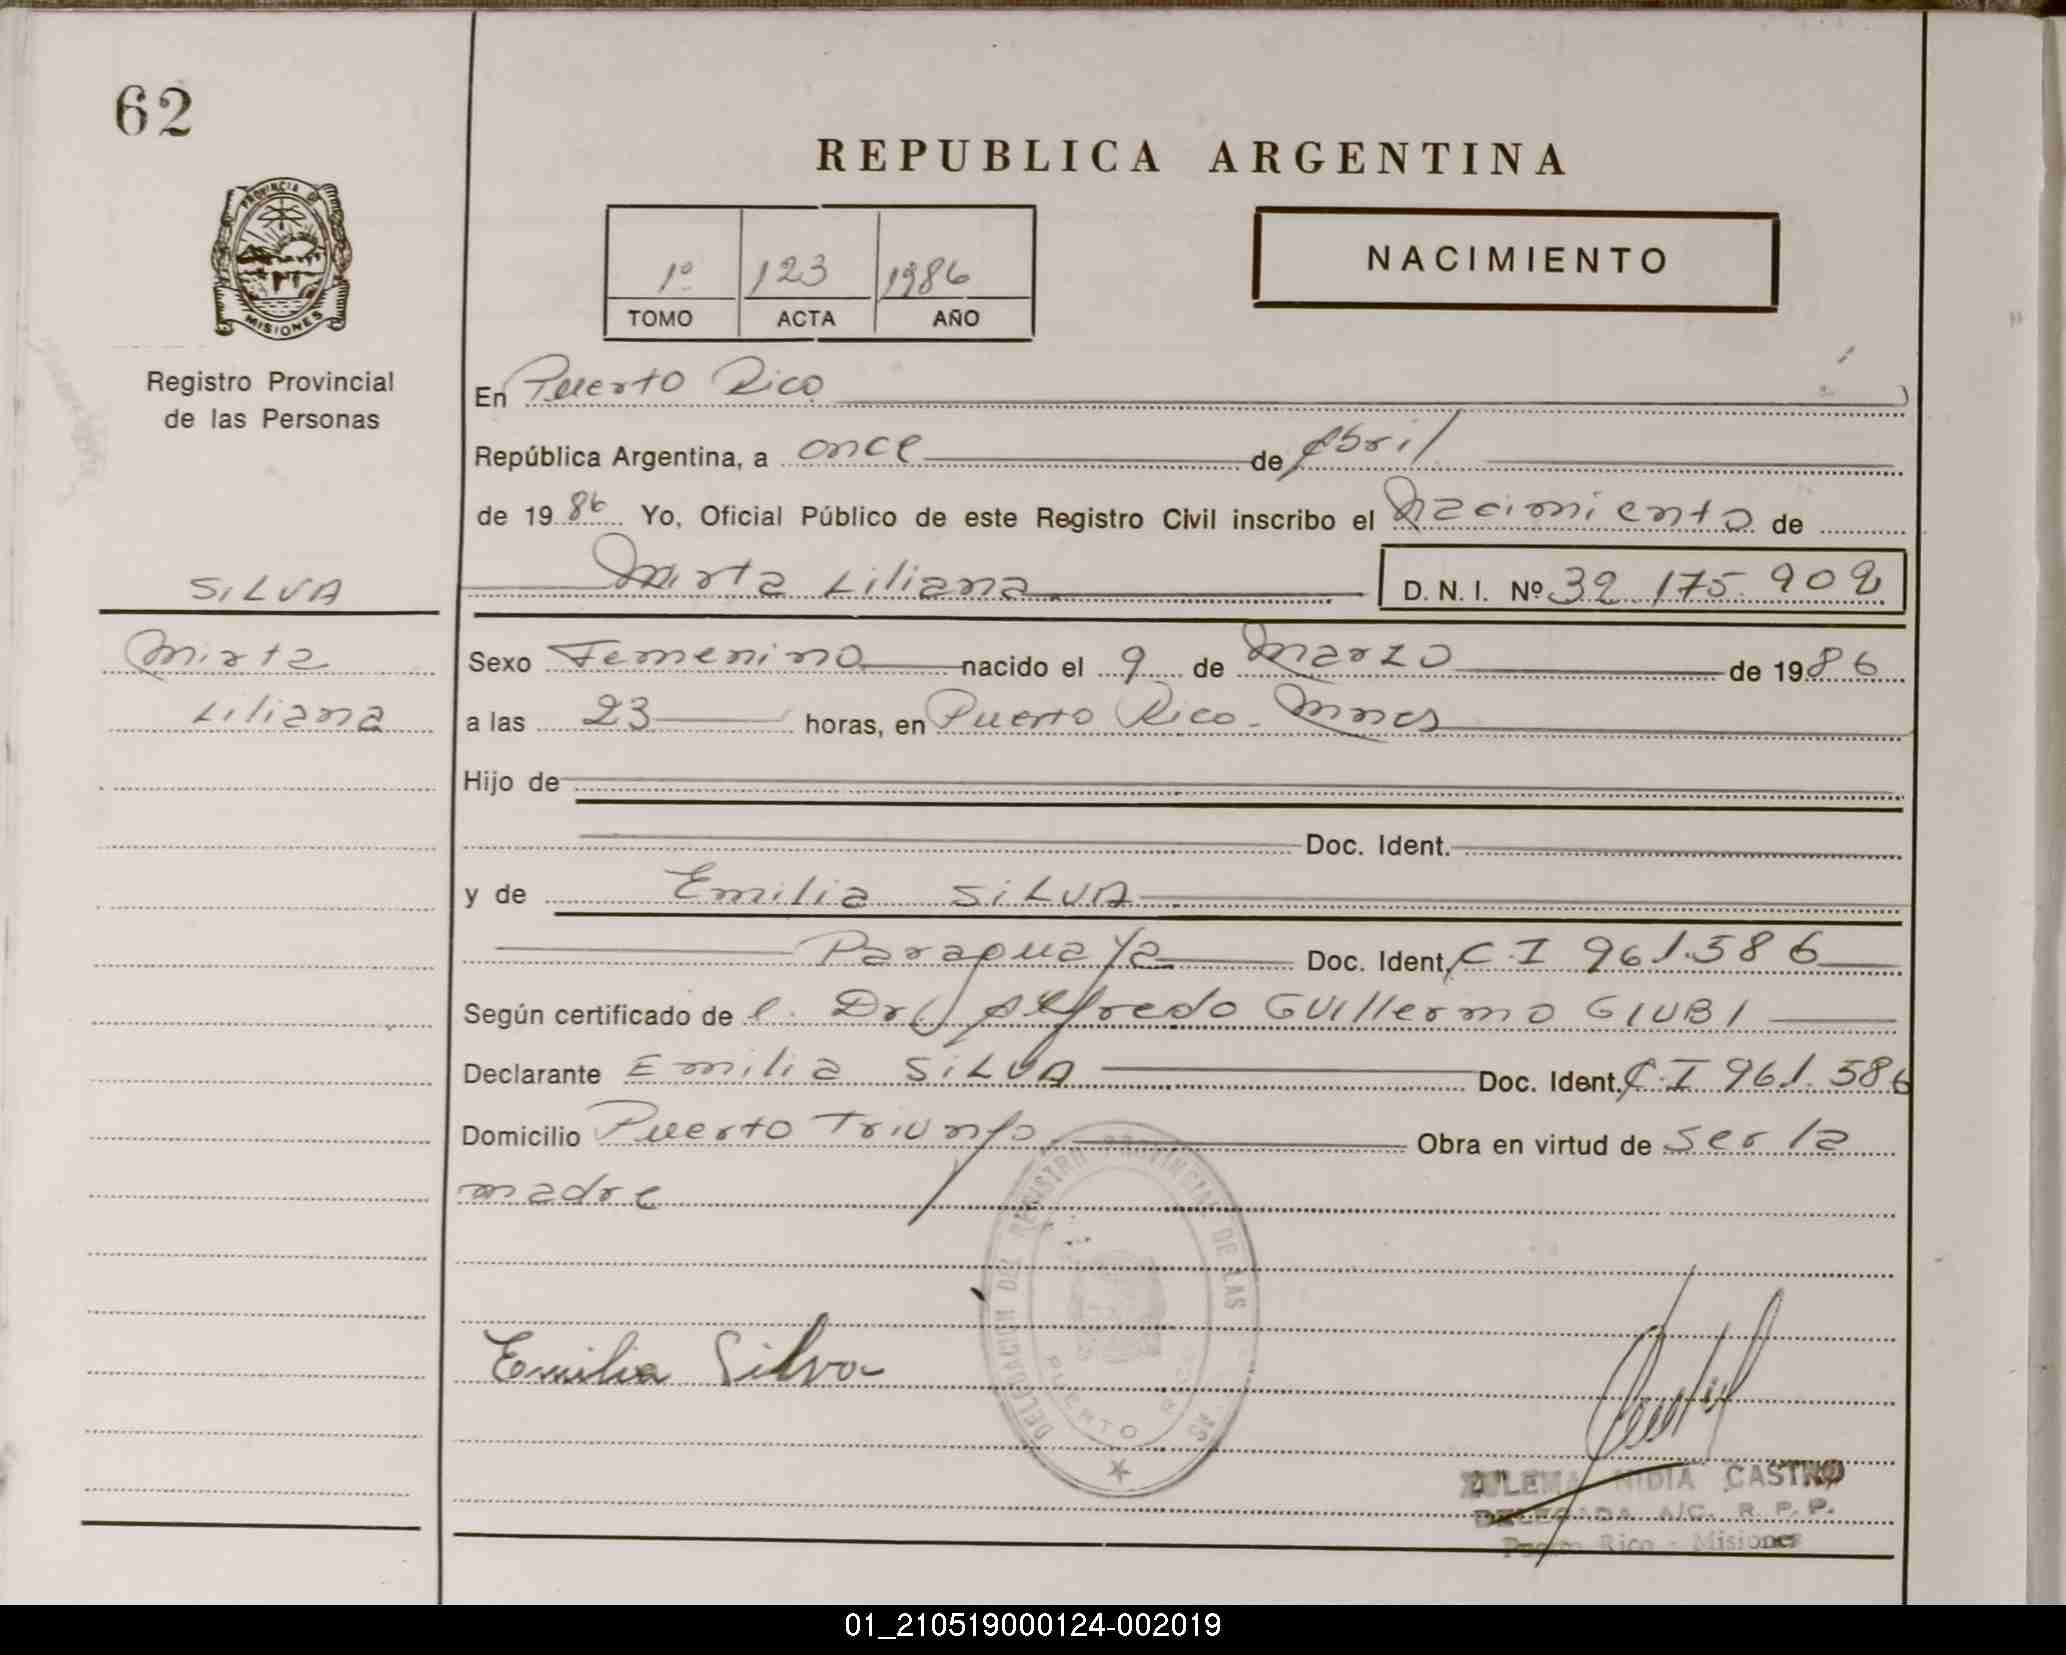 62
REPUBLICA ARGENTINA
PROVINCIA DE
MISIONES
Registro Provincial
de las Personas
1º 123 1986
TOMO ACTA AÑO
NACIMIENTO
En Puerto Rico
República Argentina, a once de Abril
de 1986 Yo, Oficial Público de este Registro Civil inscribo el Nacimiento de
Mirta Liliana D. N. I. Nº 32.175.902
SILVA
Mirta
Liliana
Sexo Femenino nacido el 9 de Marzo de 1986
a las 23 horas, en Puerto Rico - Mnes
Hijo de
Doc. Ident.
y de Emilia SILVA
Paraguaya Doc. Ident. C.I 961.586
Según certificado de l. Dr. Alfredo Guillermo GIUBI
Declarante Emilia SILVA Doc. Ident. C.I 961.586
Domicilio Puerto Triunfo Obra en virtud de ser la
madre
DELEGACION DEL REGISTRO PROVINCIAL DE LAS
PUERTO RICO
Emilia Silva
ZULEMA NIDIA CASTRO
DELEGADA A/C. R. P. P.
Puerto Rico - Misiones
01_210519000124-002019